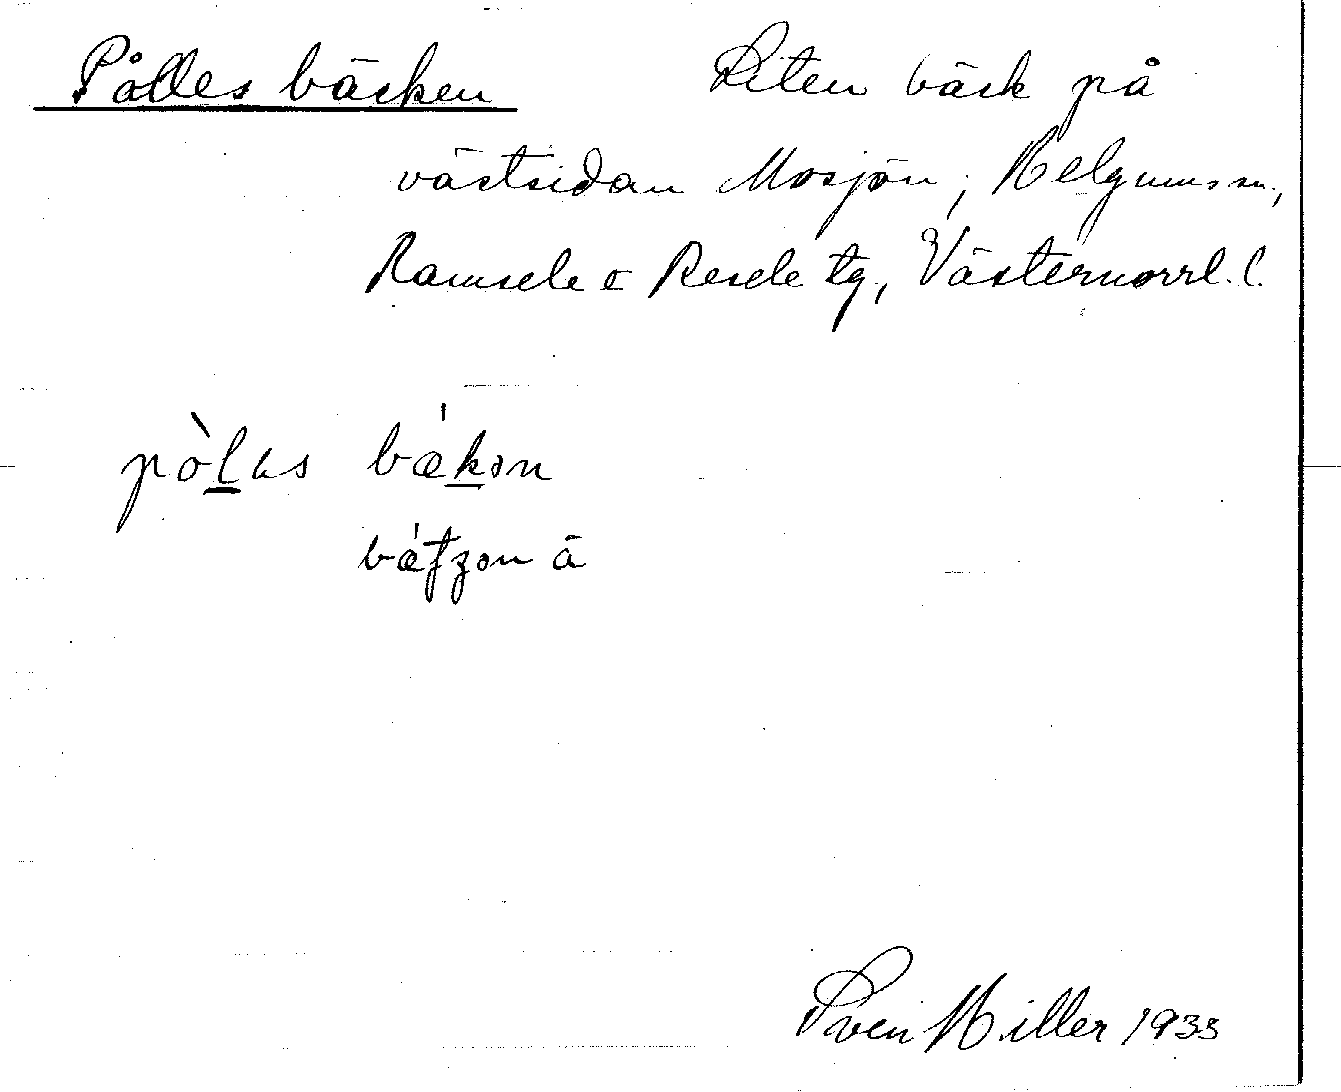 Pålles bäcken Liten bäck på
västsidan Mosjön, Helgums sn,
Ramsele o Resele tg, Västernorrl. l.
pòlas bækən
bætzən å
Sven Hiller 1933